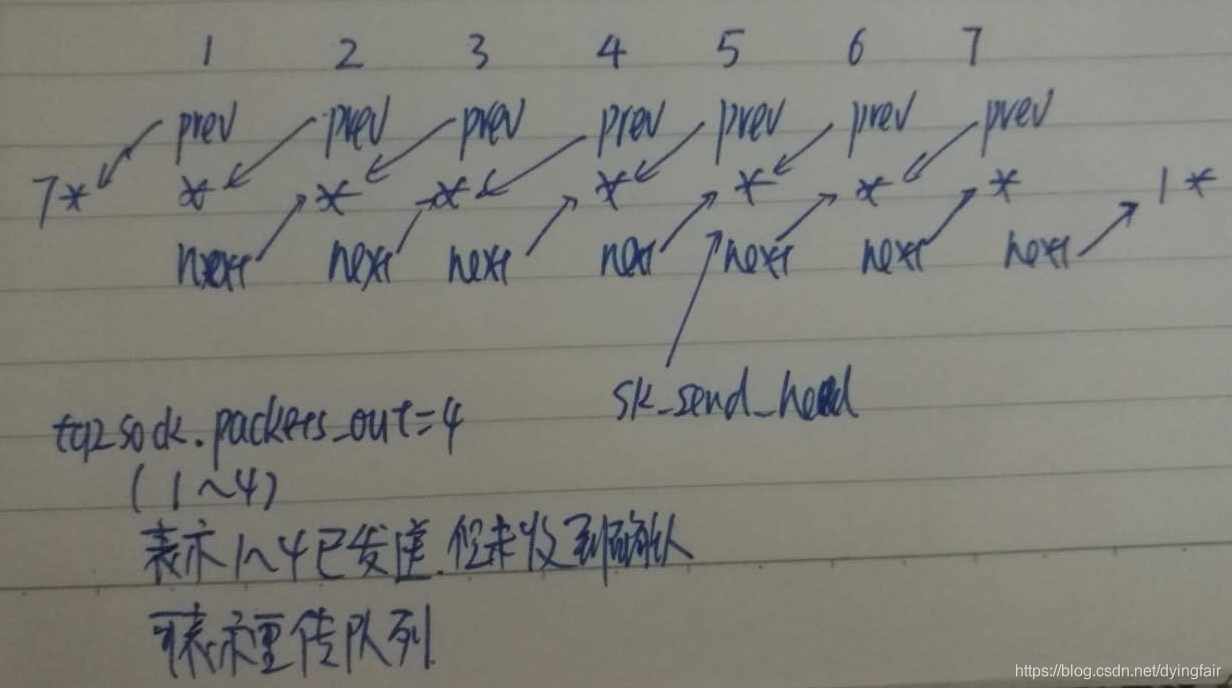 1 2 3 4 5 6 7
prev prev prev prev prev prev prev
7* * * * * * * * 1*
next next next next next next next
sk_send_head
tcpsock.packets_out=4
(1~4)
表示1~4已发送.但未收到确认
可表示重传队列
https://blog.csdn.net/dyingfair